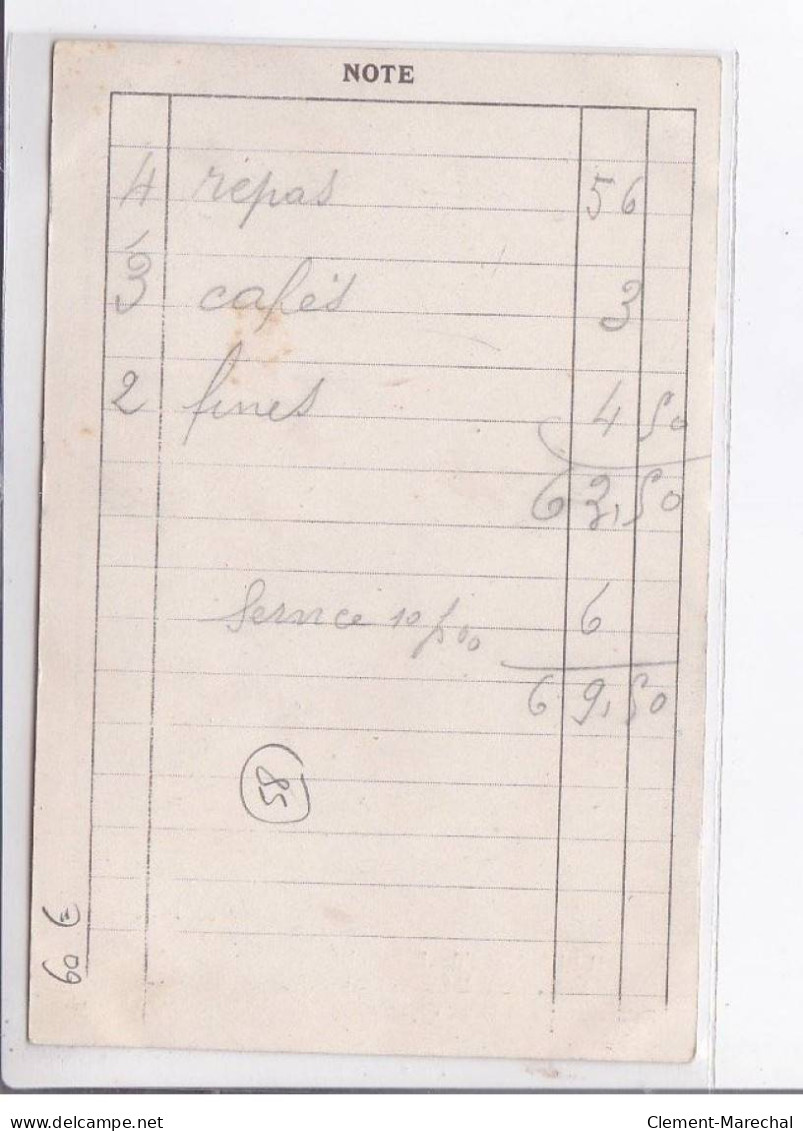 NOTE
4 repas 56
3 cafés 3
2 fines 4 50
63,50
Service 10 p 00 6
69,50
85
60 €
Clement-Marechal